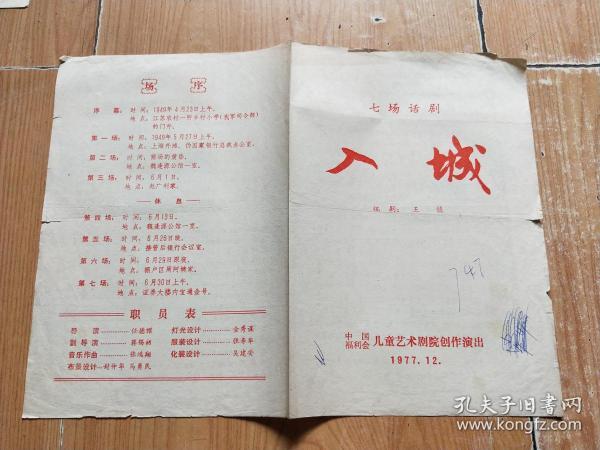 场序
序幕：时间：1949年4月23日上午。
地点：江苏农村一所乡村小学(我军司令部)
的门外。
第一场：时间：1949年5月27日上午。
地点：上海外滩，伪国家银行总裁办公室。
第二场：时间：前场的黄昏。
地点：魏逢源公馆一室。
第三场：时间：6月1日。
地点：赵广利家。
休息
第四场：时间：6月19日。
地点：魏逢源公馆一室。
第五场：时间：6月26日晚。
地点：接管后银行会议室。
第六场：时间：6月29日深夜。
地点：棚户区周阿姨家。
第七场：时间：6月30日上午。
地点：证券大楼内宝通金号。
职员表
导演——任德耀
副导演——蒋锡娟
音乐作曲——张鸿翔
布景设计—封仲年 马勇民
灯光设计——金秀谋
服装设计——张秀年
化装设计——吴建安
七场话剧
入城
编剧：王
747
中国福利会儿童艺术剧院创作演出
1977.12.
孔夫子旧书网
www.kongfz.com